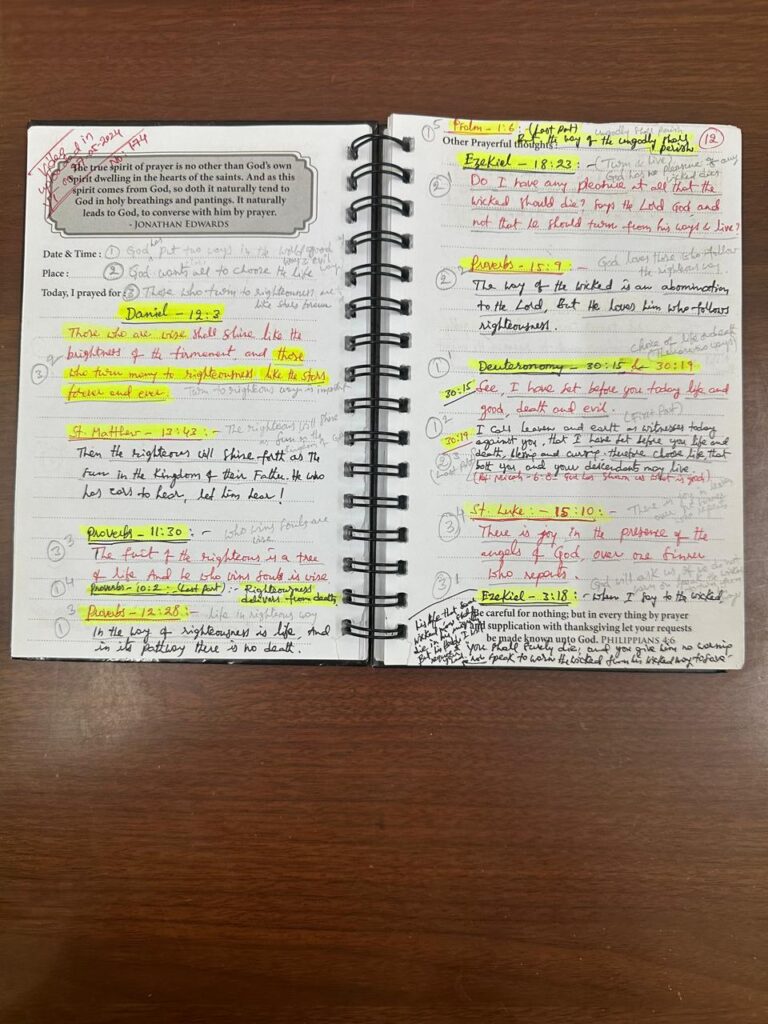 05-2024
No 174
The true spirit of prayer is no other than God's own
Spirit dwelling in the hearts of the saints. And as this
spirit comes from God, so doth it naturally tend to
God in holy breathings and pantings. It naturally
leads to God, to converse with him by prayer.
- JONATHAN EDWARDS
Date & Time : ① God has put two ways in the world good & evil
Place : ② God wants all to choose the life way
Today, I prayed for ③ Those who turn to righteousness are like stars forever
Daniel - 12:3
Those who are wise shall shine like the
brightness of the firmament and those
③ 2 who turn many to righteousness like the stars
forever and ever. Turn to righteous way is
St. Matthew - 13:43 :- The righteous will shine
as sun in the Kingdom of God
Then the righteous will shine forth as the
sun in the Kingdom of their Father. He who
has ears to hear, let him hear!
Proverbs - 11:30 :- who wins souls are
wise
③ 3 The fruit of the righteous is a tree
of life And he who wins souls is wise
① 4 Proverbs - 10:2 :- (Last part) :- Righteousness
delivers from death
① 3 Proverbs - 12:28 :- life in righteous way
In the way of righteousness is life, And
in its pathway there is no death.
① 5 Psalm - 1:6 :- (Last part) ungodly shall perish
⑫
Other Prayerful thoughts: But the way of the ungodly shall
perish
Ezekiel - 18:23 :- (Turn & live)
God has no pleasure of any
wicked dies
② 1 Do I have any pleasure at all that the
wicked should die? Says the Lord God, and
not that he should turn from his ways & live?
Proverbs - 15:9 :- God loves those who follow
the righteous way
② 2 The way of the wicked is an abomination
to the Lord, But He loves him who follows
righteousness.
choice of life & death
(There are two ways)
① 1 Deuteronomy - 30:15 & 30:19
30:15 See, I have set before you today life and
good, death and evil.
(First part)
① 2 I call heaven and earth as witnesses today
30:19 against you, that I have set before you life and
② 3 death, blessing and cursing, therefore choose life that
both you and your descendants may live.
(Ref Micah - 6:8 God has shown us what is good)
St. Luke :- 15:10 :- There is joy in heaven
over
③ 4 There is joy in the presence of the
angels of God, over one sinner
who repents.
God will ask us if we do not
③ 1 Ezekiel - 3:18 :- when I say to the wicked
Be careful for nothing; but in every thing by prayer
and supplication with thanksgiving let your requests
be made known unto God. PHILIPPIANS 4:6
You shall surely die, and you give him no warning
nor speak to warn the wicked from his wicked way to save
his life that same
wicked man shall
die in his iniquity
But his blood I will
require